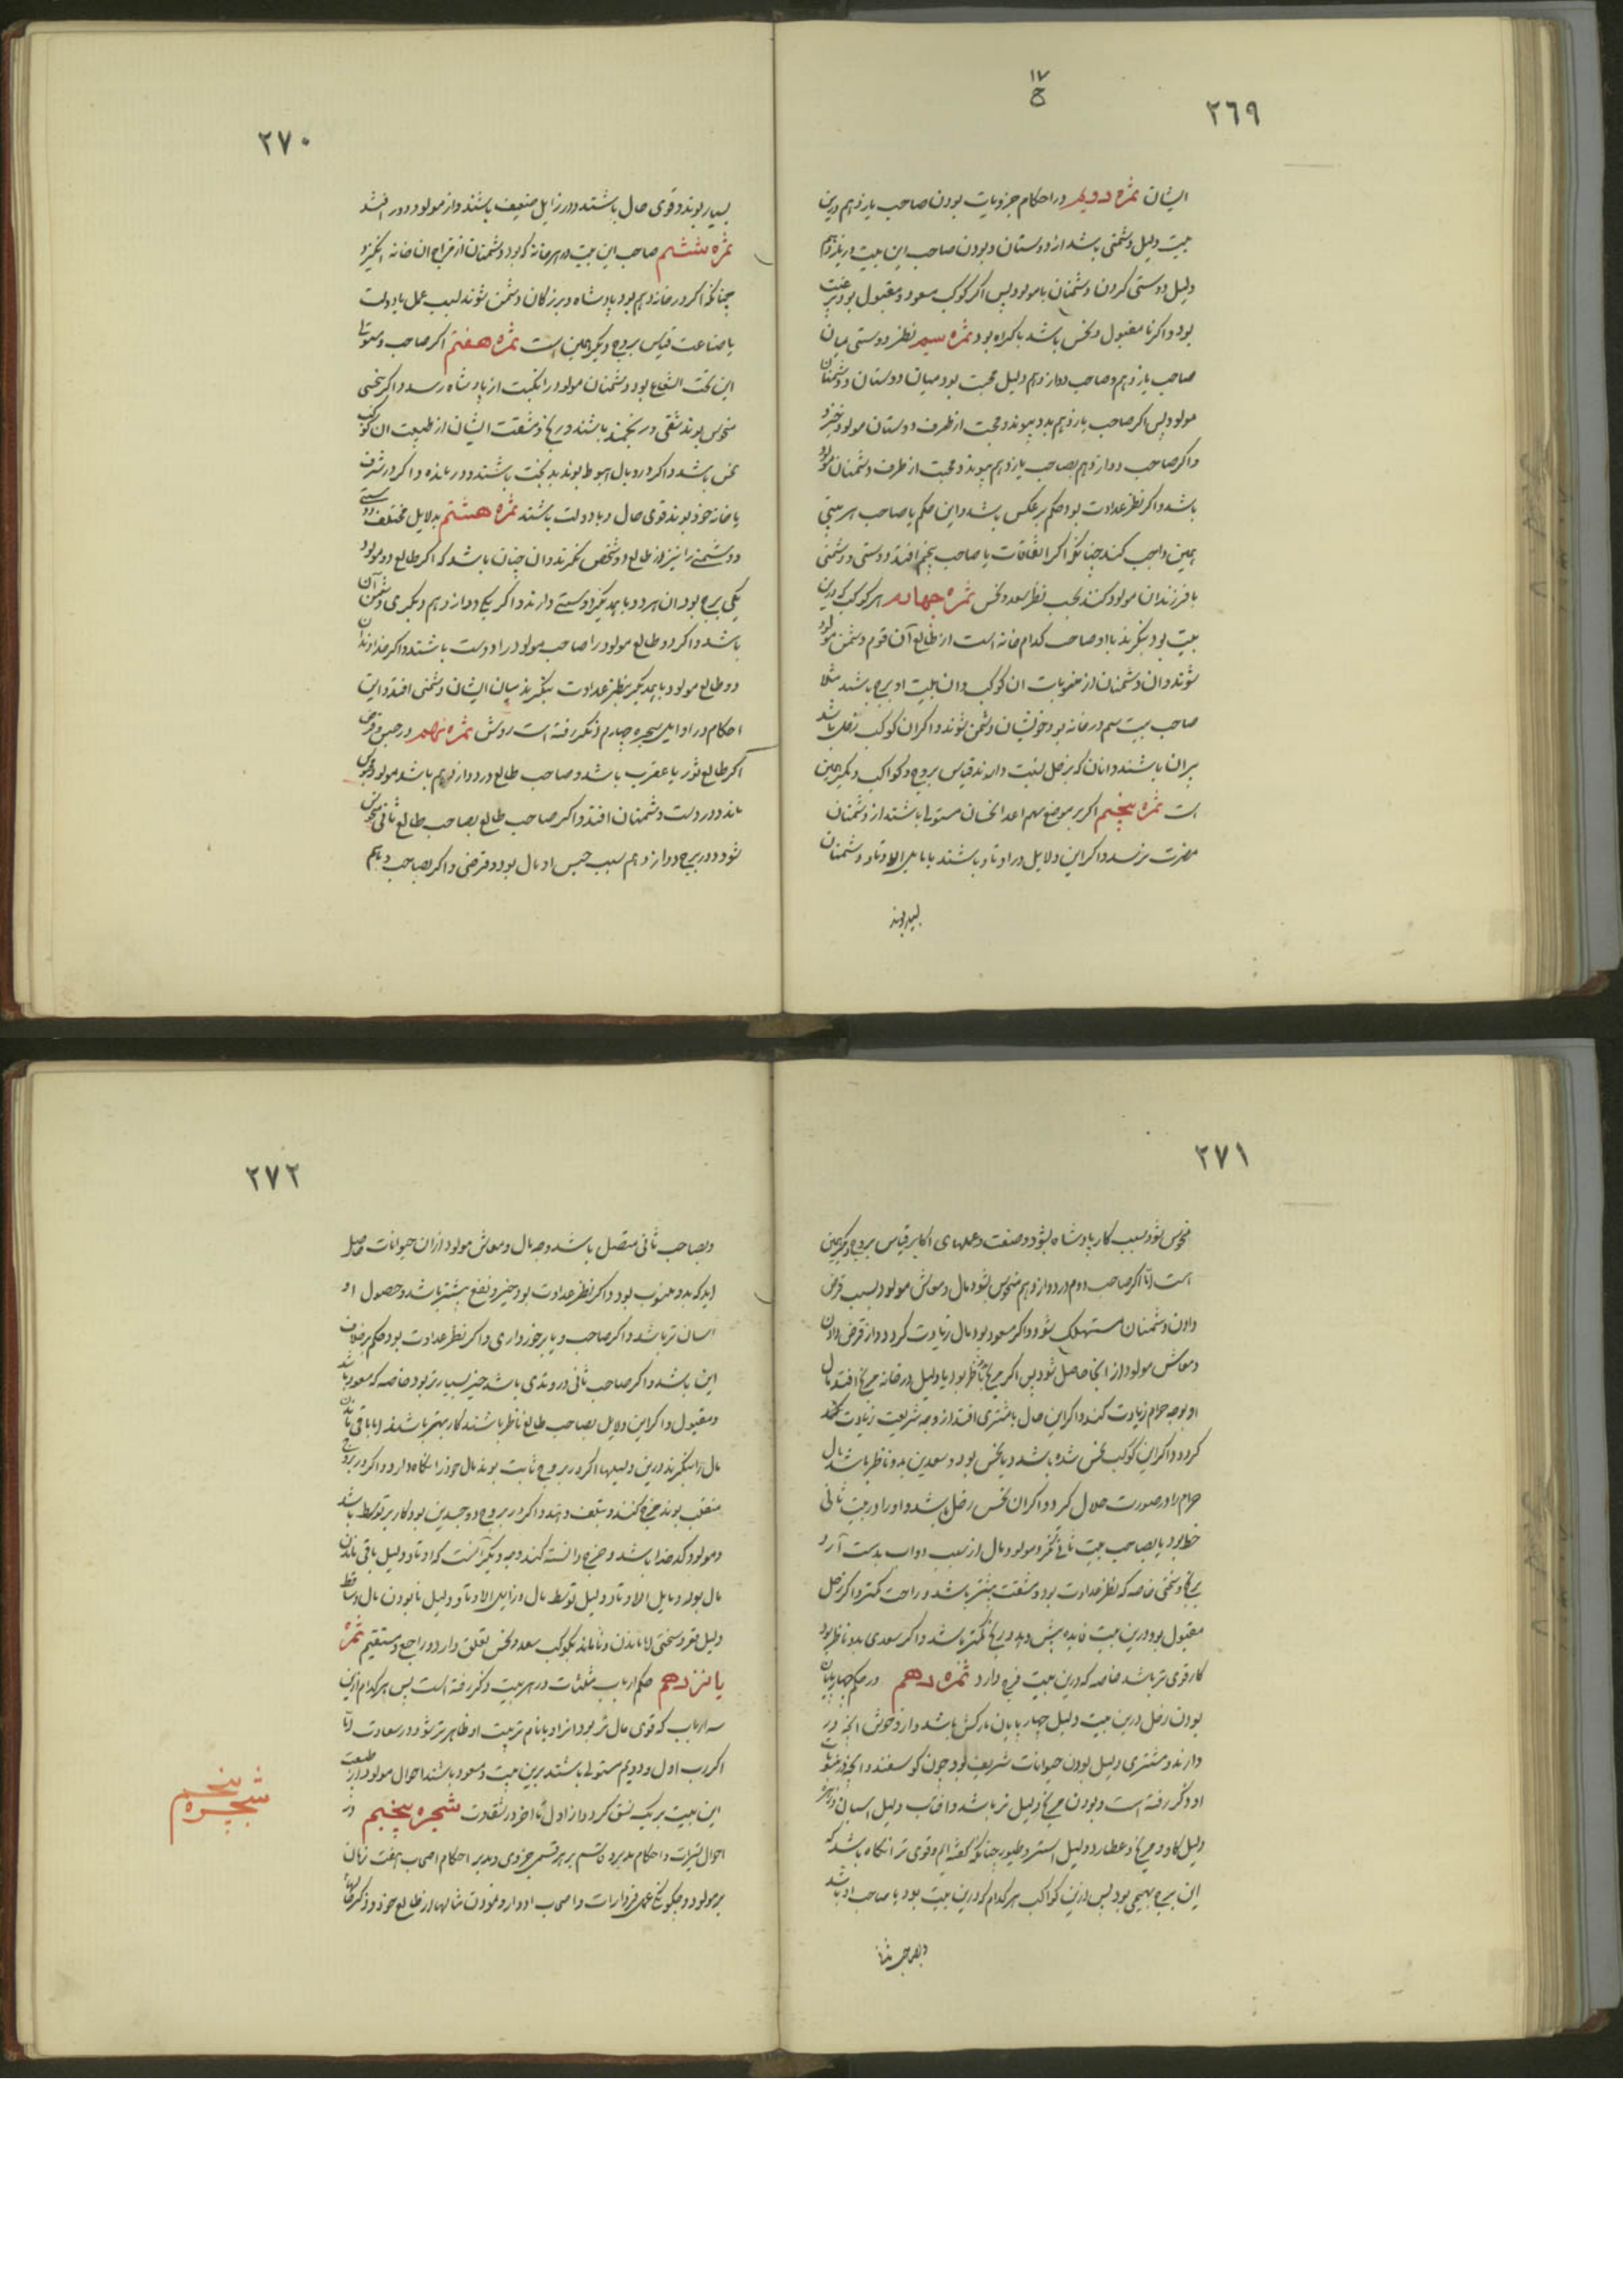 ١٧
ح
٢٦٩
ایشان ثمره دویم در احکام جزویات بودن صاحب یازدهم درین
بیت دلیل دشمنی باشد از دوستان و بودن صاحب این بیت در یازدهم
دلیل دوستی کردن دشمنان با مولود پس اگر کوکب مسعود و مقبول بود برغبت
بود و اگر نا مقبول و نحس باشد باکراه بود ثمره سیم نظر دوستی میان
صاحب یازدهم و صاحب دوازدهم دلیل محبت بود میان دوستان و دشمنان
مولود پس اگر صاحب یازدهم بدو پیوندد محبت از طرف دوستان مولود خیزد
و اگر صاحب دوازدهم بصاحب یازدهم پیوندد محبت از طرف دشمنان مولود
باشد و اگر نظر عداوت بود حکم برعکس باشد و این حکم با صاحب هر بیتی
همین واجب کند چنانکه اگر اتفاقات با صاحب پنجم افتد دوستی و دشمنی
با فرزندان مولود کنند بحسب نظر سعد و نحس ثمره چهارم هر کوکب که درین
بیت بود بنگرند تا او صاحب کدام خانه است از طالع آن قوم دشمن مولود
شوند و ان دشمنان از منسوبات ان کوکب و ان بیت او برج باشند مثلا
صاحب بیت سیم در خانه بود خویشان دشمن شوند و اگر ان کوکب زحل باشد
پیران باشند و انان که بزحل نسبت دارند قیاس بروج و کواکب دیگر همین
است ثمره پنجم اگر بر موضع سهم اعدا نحسان مستولی باشند از دشمنان
مضرت رسد و اگر این دلایل در اوتاد باشند یا مایل الاوتاد دشمنان
بسیار بوند
٢٧٠
بسیار بوند و قوی حال باشند و در زایل ضعیف باشند و از مولود دور افتند
ثمره ششم صاحب این بیت در هر خانه که بود دشمنان از مزاج ان خانه انگیزد
چنانکه اگر در خانه دهم بود پادشاه و بزرگان دشمن شوند بسبب عمل یا دولت
یا صناعت قیاس بروج دیگر همین است ثمره هفتم اگر صاحب و مستولی
این تحت الشعاع بود دشمنان مولود را نکبت از پادشاه رسد و اگر بنحسی
منحوس بوند شقی و رنجمند باشند و رنج و مشقت ایشان از طبیعت ان کوکب
نحس باشد و اگر در وبال و هبوط بوند بدبخت باشند و درمانده و اگر در شرف
یا خانه خود بوند قوی حال و با دولت باشند ثمره هشتم بدلایل مختلف دوستی
و دشمنی را نیز از طالع دو شخص نگرند و ان چنان باشد که اگر طالع دو مولود
یکی برج بود ان هر دو با همدیگر دوستی دارند و اگر یکی دوازدهم دیگری دشمن آن
باشد و اگر دو طالع مولود را صاحب مولود را دوست باشند و اگر خداوندان
دو طالع مولود با یکدیگر بنظر عداوت بنگرند میان ایشان دشمنی افتد و این
احکام در اوایل شجره چهارم ذکر رفته است روش ثمره نهم در حبس و قرض
اگر طالع ثور یا عقرب باشد و صاحب طالع در دوازدهم باشد مولود محبوس
ماند و در دست دشمنان افتد و اگر صاحب طالع بصاحب طالع ثانی منحوس
شود و در برج دوازدهم سبب حبس او مال بود و قرض و اگر بصاحب دهم
٢٧١
منحوس شود بسبب کار پادشاه بود و صنعت و عملهای اکابر قیاس بروج دیگر همین
است اما اگر صاحب دوم در دوازدهم منحوس شود مال و معاش مولود بسبب قرض
دادن دشمنان مستهلک شود و اگر مسعود بود مال زیادت کردد و از قرض دادن
و معاش مولود از انجا حاصل شود پس اگر مریخ ناظر بود یا دلیل در خانه مریخ افتد مال
او بوجه حرام زیادت کند و اگر این حال با مشتری افتد از وجه شریعت زیادت کند
کردد و اگر این کوکب نحس شده باشد و یا نحس بود و سعدین بدو ناظر باشند مال
حرام را در صورت حلال کرد و اگر ان نحس زحل باشد و او را در بیت ثانی
حظ بود یا بصاحب بیت ثانی نگرد مولود مال از سبب دواب بدست آرد
برنج و سختی خاصه که نظر عداوت بود و مشقت بیشتر باشد و راحت کمتر و اگر زحل
مقبول بود درین بیت فایده بیش دهد و رنج کمتر باشد و اگر سعدی بدو ناظر بود
کار قوی تر باشد خاصه که درین بیت فرح دارد ثمره دهم در حکم چهارپایان
بودن زحل درین بیت دلیل چهارپایان بارکش باشد و از وحوش انچه در
دارند و مشتری دلیل بودن حیوانات شریف بود چون کوسفند و انچه در منسوبات
او ذکر رفته است و بودن مریخ دلیل نر باشد و افتاب دلیل اسپان و زهره
دلیل کاو و مریخ و عطارد دلیل استر و طیور چنانکه گفته ایم و قوی تر انکاه باشد که
این برج بهیمی بود پس ازین کواکب هر کدام که درین بیت بود یا صاحب او باشد
و بصاحب ثانی
٢٧٢
و بصاحب ثانی متصل باشد وجه مال و معاش مولود از ان حیوانات حاصل
اید که بدو منسوب بود و اگر نظر عداوت بود خیر و نفع بیشتر باشد و حصول او
اسان تر باشد و اگر صاحب و یا برخورداری و اگر نظر عداوت بود حکم برخلاف
این باشد و اگر صاحب ثانی در وتدی باشد خیر بسیارتر بود خاصه که مسعود باشد
و مقبول و اگر این دلایل بصاحب طالع ناظر باشند کار بهتر باشد اما باقی ماندن
مال را بنگرند درین دلیلها اگر در بروج ثابت بوند مال خود را نگاه دارد و اگر در بروج
منقلب بوند خرج کنند و بتلف دهند و اگر در بروج دو جسدین بود کار بر توسط باشد
و مولود کدخدا باشد و خرج دانسته کند وجه دیگر آنست که اوتاد دلیل باقی ماندن
مال بود و مایل الاوتاد دلیل توسط مال و زایل الاوتاد دلیل نابودن مال و ساقط
دلیل فقر و سختی اما ماندن و ناماندن بکوکب سعد و نحس تعلق دارد و راجع و مستقیم ثمره
یانزدهم حکم ارباب مثلثات در هر بیت ذکر رفته است پس هر کدام ازین
سه ارباب که قوی حال تر بود از او بانام تربیت او ظاهرتر شود در سعادت اما
اگر رب اول و دویم مستولی باشند برین بیت و مسعود باشند احوال مولود از طبیعت
این بیت بر یک نسق کردد از اول تا اخر در شقاوت شجره پنجم در
احوال تسییرات و احکام مدبر و قاسم بر هر قسمی جزوی و مدبر احکام اصحاب هفت زمان
بر مولود و چگونگی عمل فردارات و اصحاب ادوار و نمودن مثالها از طالع خود و ذکر
شجره
پنجم